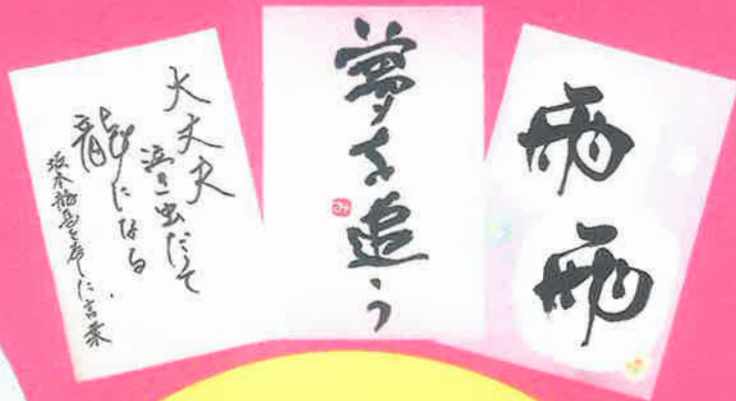 大丈夫
泣き虫だって
龍になる
坂本龍馬を声した言葉
夢を追う
み
雨
雨